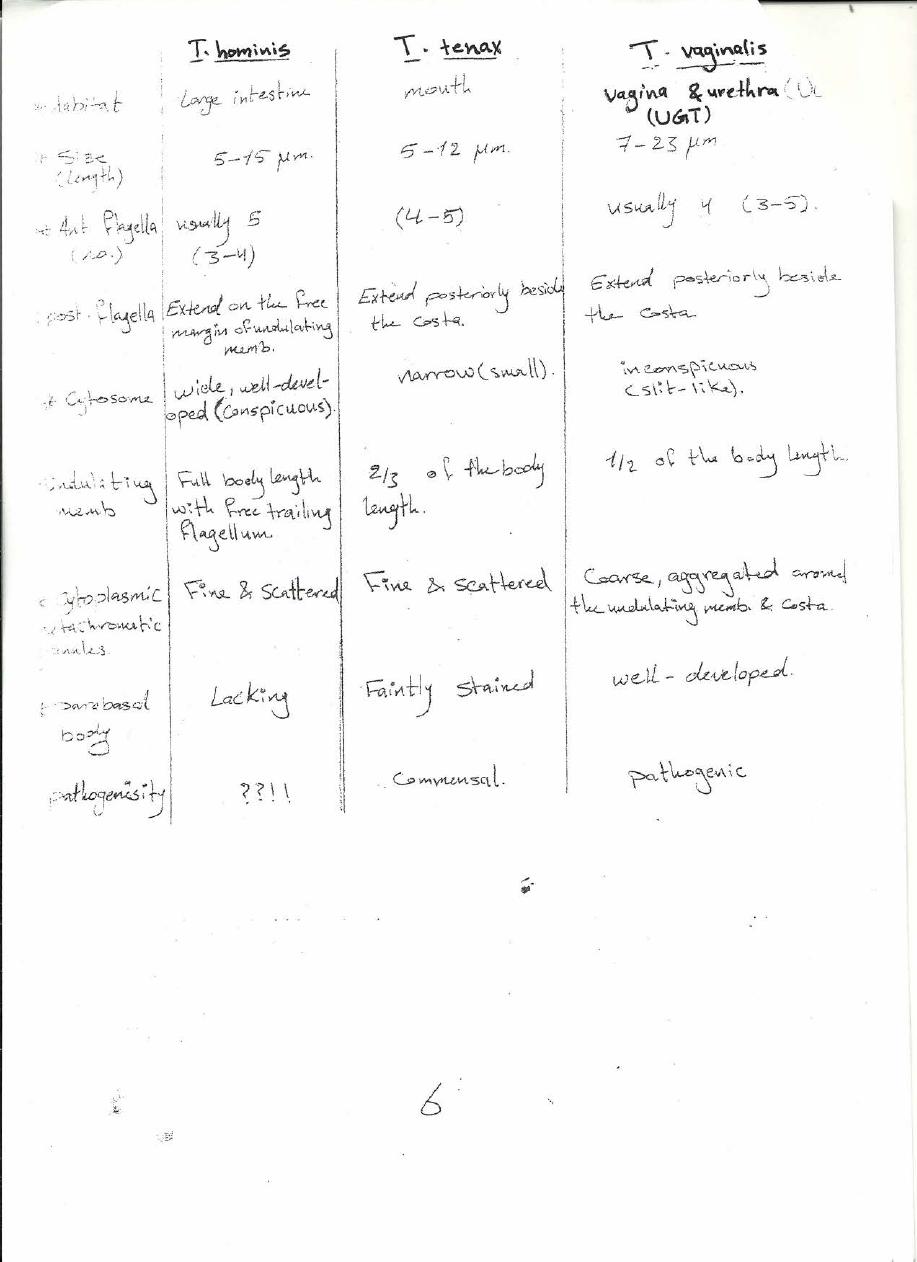 T. hominis T. tenax T. vaginalis
Habitat Large intestine mouth vagina & urethra
(UGT)
Size 5-15 µm. 5-12 µm. 7-23 µm
(Length)
Ant flagella usually 5 (4-5) usually 4 (3-5).
(no.) (3-4)
post. flagella Extend on the free Extend posteriorly beside Extend posteriorly beside
margin of undulating the costa. the costa
memb.
Cytosome wide, well-devel- narrow (small). inconspicuous
oped (conspicuous). (slit-like).
undulating Full body length 2/3 of the body 1/2 of the body length.
memb with free trailing length.
flagellum
Cytoplasmic Fine & Scattered Fine & scattered Coarse, aggregated around
metachromatic the undulating memb. & costa.
parabasal Lacking Faintly stained well-developed.
body
pathogenisity ??!! Commensal. pathogenic
6